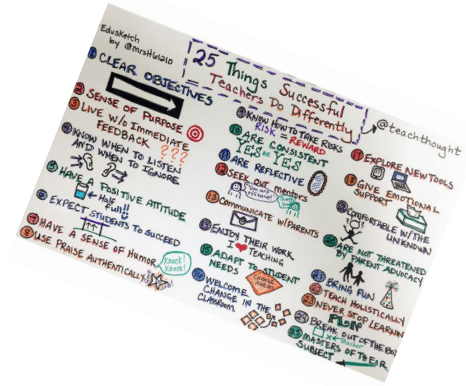 EduSketch
by @mrsHblalo
25 Things Successful
Teachers Do Differently
@teachthought
1 CLEAR OBJECTIVES
2 SENSE OF PURPOSE
3 LIVE W/O IMMEDIATE
FEEDBACK ???
4 KNOW WHEN TO LISTEN
AND WHEN TO IGNORE
5 HAVE A POSITIVE ATTITUDE
Half
Full!!
6 EXPECT STUDENTS TO SUCCEED
7 HAVE A SENSE OF HUMOR
Knock!
Knock!
8 USE PRAISE AUTHENTICALLY
9 KNOW HOW TO TAKE RISKS
RISK = REWARD
10 ARE CONSISTENT
YES or YES
11 ARE REFLECTIVE
12 SEEK OUT mentors
You are
awesome!
13 COMMUNICATE W/PARENTS
ENJOY THEIR WORK
I ❤ TEACHING
15 ADAPT TO STUDENT
NEEDS
16 WELCOME
CHANGE IN THE
CLASSROOM
17 EXPLORE NEW TOOLS
18 GIVE EMOTIONAL
SUPPORT
COMFORTABLE W/THE
UNKNOWN
20 ARE NOT THREATENED
BY PARENT ADVOCACY
21 BRING FUN
22 TEACH HOLISTICALLY
23 NEVER STOP LEARNING
24 BREAK OUT OF THE BOX
25 MASTERS OF THEIR
SUBJECT